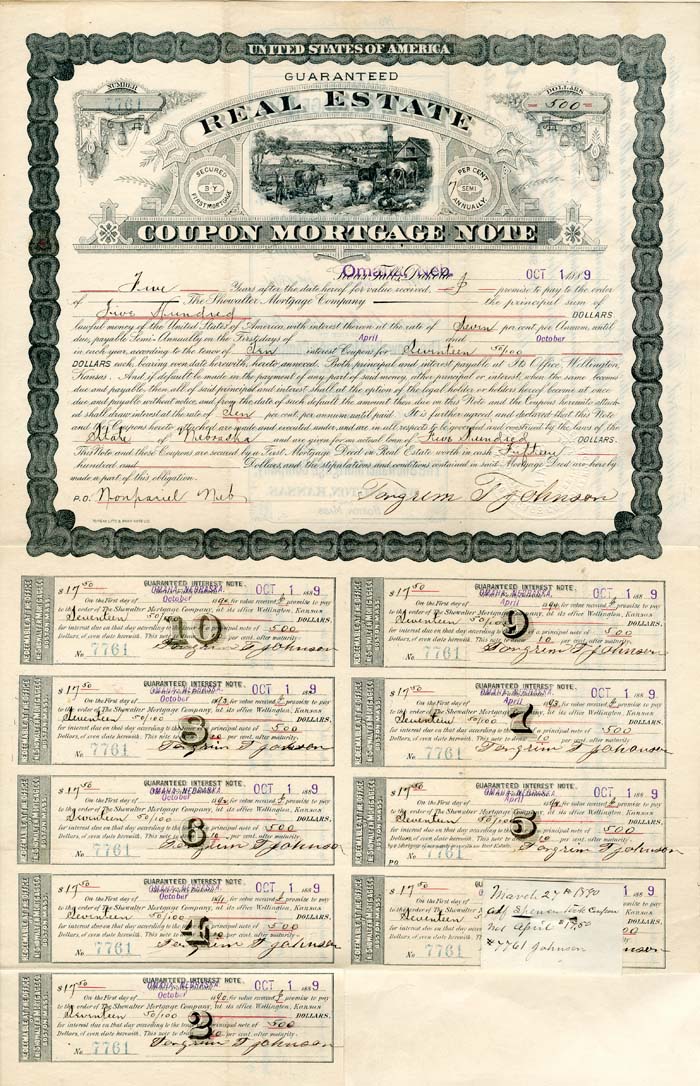 UNITED STATES OF AMERICA
GUARANTEED
NUMBER
7761
DOLLARS
500
REAL ESTATE
SECURED BY FIRST MORTGAGE
7 PER CENT SEMI ANNUALLY
COUPON MORTGAGE NOTE
Omaha, Neb. OCT 1 1889
Five Years after the date hereof for value received, I promise to pay to the order
of The Showalter Mortgage Company the principal sum of
Five Hundred DOLLARS
lawful money of the United States of America, with interest thereon at the rate of Seven per cent per Annum, until
due, payable Semi-Annually on the First days of April and October
in each year, according to the tenor of Ten interest Coupons for Seventeen 50/100
DOLLARS each, bearing even date herewith, hereto annexed. Both principal and interest payable at Its Office, Wellington,
Kansas. And if default be made in the payment of any part of said money, either principal or interest, when the same become
due and payable, then all of said principal and interest shall at the option of the legal holder or holders hereof become at once
due and payable without notice, and from the date of such default the amount then due on this Note and the Coupons hereinto attach-
ed shall draw interest at the rate of Ten per cent. per annum until paid. It is further agreed and declared that this Note
and the Coupons hereto attached are made and executed under, and are in all respects to be governed and construed by the laws of the
State of Nebraska and are given for an actual loan of Five Hundred DOLLARS.
This Note and these Coupons are secured by a First Mortgage Deed on Real Estate worth in cash Fifteen
hundred and Dollars, and the stipulations and conditions contained in said Mortgage Deed are hereby
made a part of this obligation.
P.O. Nonpariel Neb Torgrim T Johnson
REDEEMABLE AT THE OFFICE
BOSTON MASS
$17 50 GUARANTEED INTEREST NOTE.
OMAHA, NEBRASKA, OCT 1 1889
On the First day of October for value received I promise to pay
to the order of The Showalter Mortgage Company, at its office Wellington, Kansas
Seventeen 50/100 DOLLARS,
for interest due on that day according to principal note of 500
Dollars, of even date herewith. This note 10 per cent. after maturity.
No. 7761 10 Torgrim T Johnson
REDEEMABLE AT THE OFFICE
BOSTON MASS
$17 50 GUARANTEED INTEREST NOTE.
OMAHA, NEBRASKA, OCT 1 1889
On the First day of April for value received I promise to pay
to the order of The Showalter Mortgage Company, at its office Wellington, Kansas
Seventeen 50/100 DOLLARS,
for interest due on that day according to principal note of 500
Dollars, of even date herewith. This note 10 per cent. after maturity.
No. 7761 9 Torgrim T Johnson
$17 50 GUARANTEED INTEREST NOTE.
OMAHA, NEBRASKA, OCT 1 1889
On the First day of October for value received I promise to pay
to the order of The Showalter Mortgage Company, at its office Wellington, Kansas
Seventeen 50/100 DOLLARS,
for interest due on that day according to principal note of 500
Dollars, of even date herewith. This note 10 per cent. after maturity.
No. 7761 8 Torgrim T Johnson
$17 50 GUARANTEED INTEREST NOTE.
OMAHA, NEBRASKA, OCT 1 1889
On the First day of April for value received I promise to pay
to the order of The Showalter Mortgage Company, at its office Wellington, Kansas
Seventeen 50/100 DOLLARS,
for interest due on that day according to principal note of 500
Dollars, of even date herewith. This note 10 per cent. after maturity.
No. 7761 7 Torgrim T Johnson
$17 50 GUARANTEED INTEREST NOTE.
OMAHA, NEBRASKA, OCT 1 1889
On the First day of October for value received I promise to pay
to the order of The Showalter Mortgage Company, at its office Wellington, Kansas
Seventeen 50/100 DOLLARS,
for interest due on that day according to principal note of 500
Dollars, of even date herewith. This note 10 per cent. after maturity.
No. 7761 6 Torgrim T Johnson
$17 50 GUARANTEED INTEREST NOTE.
OMAHA, NEBRASKA, OCT 1 1889
On the First day of April for value received I promise to pay
to the order of The Showalter Mortgage Company, at its office Wellington, Kansas
Seventeen 50/100 DOLLARS,
for interest due on that day according to the principal note of 500
Dollars, of even date herewith. This note 10 per cent. after maturity.
P.O. 5 Torgrim T Johnson
$17 50 GUARANTEED INTEREST NOTE.
OMAHA, NEBRASKA, OCT 1 1889
On the First day of October for value received I promise to pay
to the order of The Showalter Mortgage Company, at its office Wellington, Kansas
Seventeen 50/100 DOLLARS,
for interest due on that day according to principal note of 500
Dollars, of even date herewith. This note 10 per cent. after maturity.
No. 7761 4 Torgrim T Johnson
$17 50 1 1889
On the First
to the order of The Showalter Kansas
Seventeen DOLLARS,
for interest due on that day
Dollars, of even date herewith.
No. 7761
March 27th 1890
Coupon
April $17.50
#7761 Johnson
$17 50 GUARANTEED INTEREST NOTE.
OMAHA, NEBRASKA, OCT 1 1889
On the First day of October 1890, for value received I promise to pay
to the order of The Showalter Mortgage Company, at its office Wellington, Kansas
Seventeen 50/100 DOLLARS,
for interest due on that day according to the principal note of 500
Dollars, of even date herewith. This note to 10 per cent. after maturity.
No. 7761 2 Torgrim T Johnson